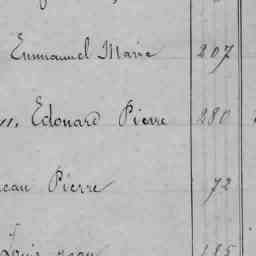 Emmanuel Marie 207
Edouard Pierre 280
Jean Pierre 72
Louis Jean 185